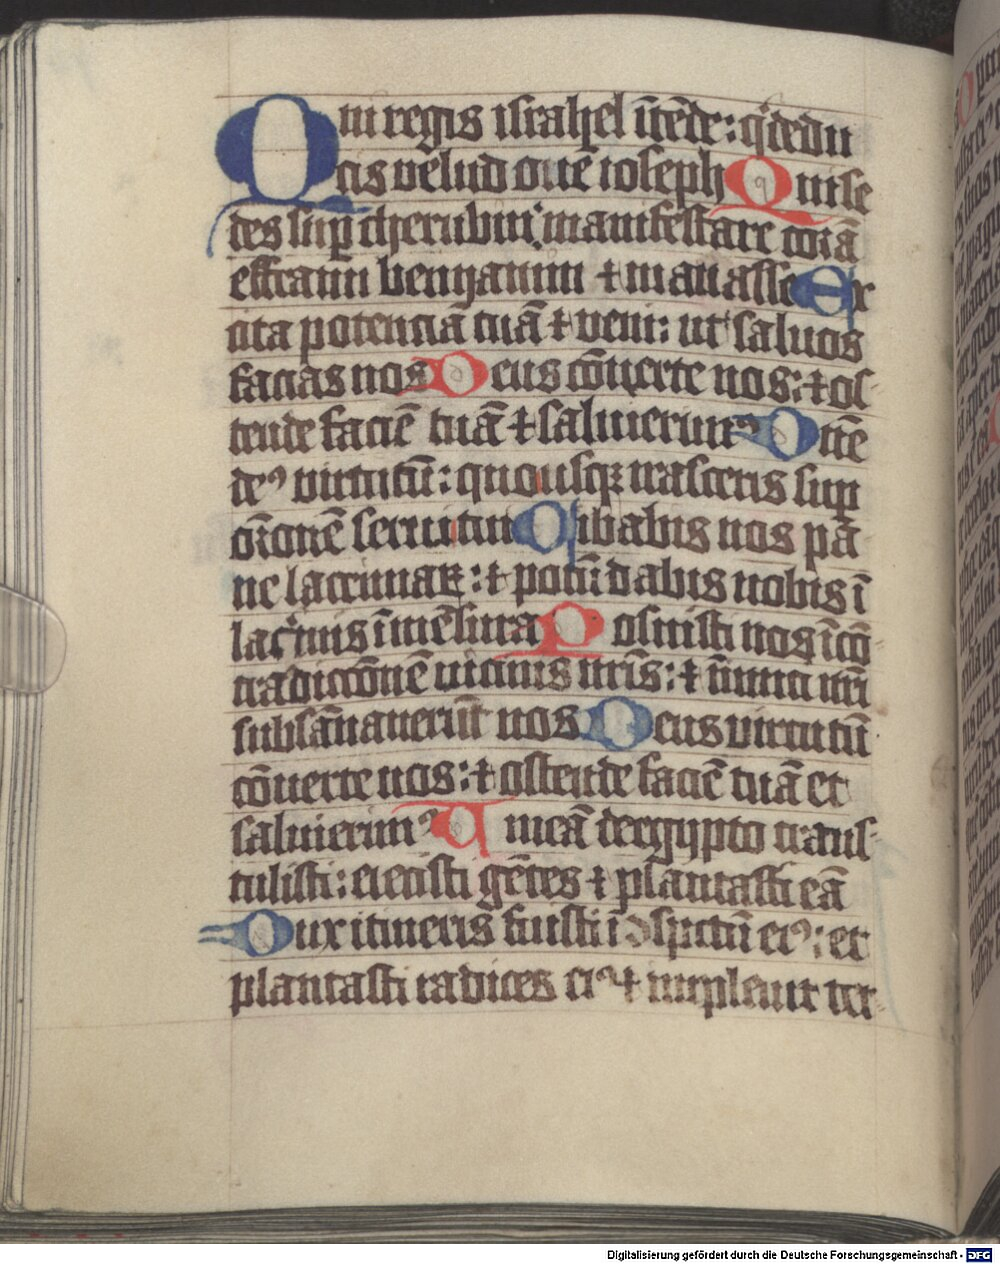 Qui regis israhel ītēde: q dedu
cis velud ouē ioseph Qui se
des sup cherubin manifestare corā
effraim beniamin ⁊ manasse Ex
cita potenciā tuā ⁊ veni: ut saluos
facias nos Deus cōuerte nos: ⁊ os
tende faciē tuā ⁊ salui erimꝰ Dñe
deꝰ virtutū: quousqꝫ irasceris sup
orōnē serui tui Cibabis nos pa
ne lacrimaꝝ: ⁊ potū dabis nobis ī
lacrimis ī mēsura Posuisti nos ī cō
tradiccōnē uicinis nr̄is: ⁊ īimici nr̄i
subsānauerūt nos Deus virtutū
cōuerte nos: ⁊ ostende faciē tuā et
salui erimꝰ Vineā de egypto trans
tulisti: eiecisti gētes ⁊ plantasti eā
Dux itineris fuisti ī ɔspectu eiꝰ: et
plantasti radices eiꝰ ⁊ impleuit ter
Digitalisierung gefördert durch die Deutsche Forschungsgemeinschaft - DFG